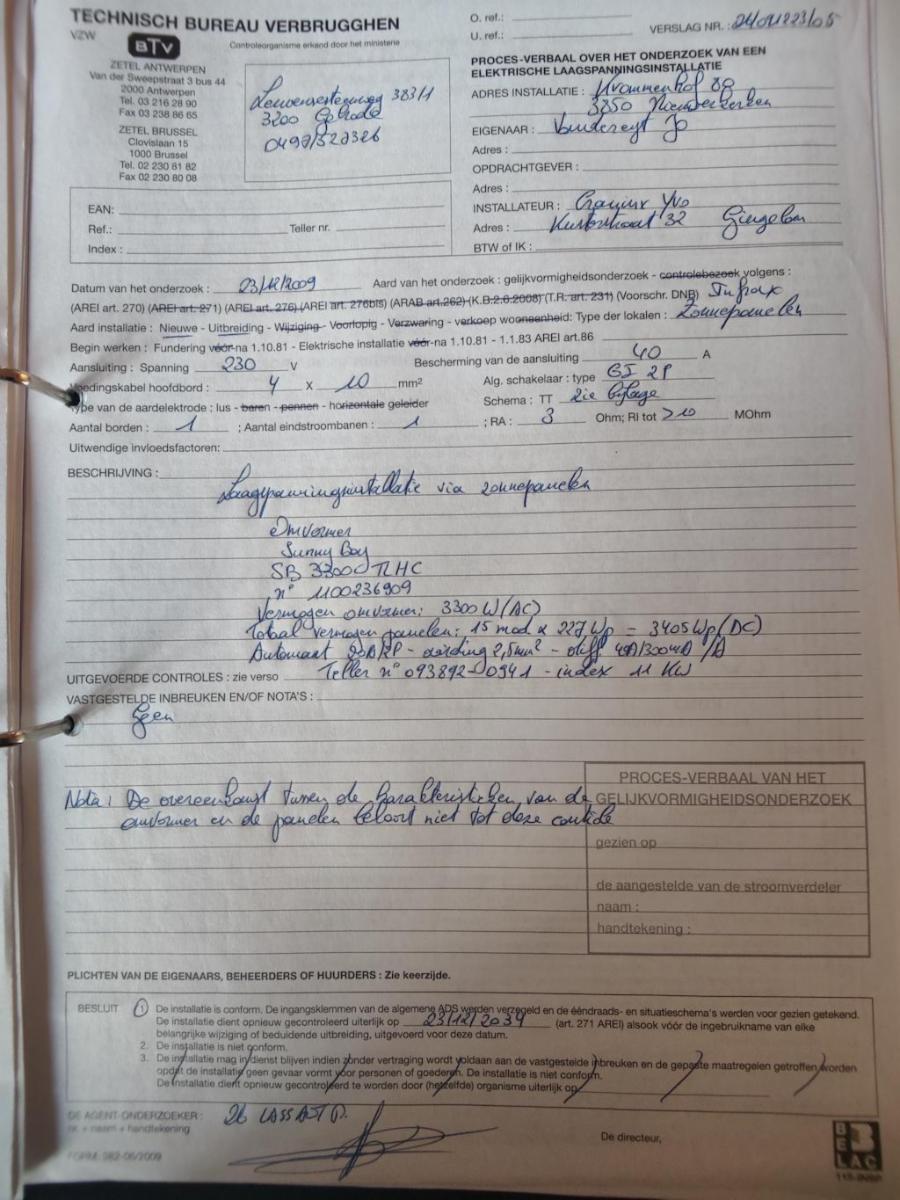 TECHNISCH BUREAU VERBRUGGHEN
VZW
BTV
Controleorganisme erkend door het ministerie
ZETEL ANTWERPEN
Van der Sweepstraat 3 bus 44
2000 Antwerpen
Tel. 03 216 28 90
Fax 03 238 86 65
ZETEL BRUSSEL
Clovislaan 15
1000 Brussel
Tel. 02 230 81 82
Fax 02 230 80 08
Leuvensesteenweg 383/1
3200
0497/527326
O. ref.:
U. ref.:
VERSLAG NR. :
PROCES-VERBAAL OVER HET ONDERZOEK VAN EEN
ELEKTRISCHE LAAGSPANNINGSINSTALLATIE
ADRES INSTALLATIE : Krommenhof 8
3850 Nieuwerkerken
EIGENAAR : Jo
Adres :
OPDRACHTGEVER :
Adres :
INSTALLATEUR : Yvo
Adres : 32 Gingelom
BTW of IK :
EAN:
Ref.: Teller nr.
Index :
Datum van het onderzoek : 23/12/2009 Aard van het onderzoek : gelijkvormigheidsonderzoek - controlebezoek volgens :
(AREI art. 270) (AREI art. 271) (AREI art. 276) (AREI art. 276bis) (ARAB art.262) (K.B.2.6.2008) (T.R. art. 231) (Voorschr. DNB) Infrax
Aard installatie : Nieuwe - Uitbreiding - Wijziging - Voorlopig - Verzwaring - verkoop wooneenheid: Type der lokalen : Zonnepanelen
Begin werken : Fundering vóór-na 1.10.81 - Elektrische installatie vóór-na 1.10.81 - 1.1.83 AREI art.86
Aansluiting : Spanning 230 V Bescherming van de aansluiting 40 A
Voedingskabel hoofdbord : 4 x 10 mm² Alg. schakelaar : type 2P
Type van de aardelektrode : lus - baren - pennen - horizontale geleider Schema : TT zie bijlage
Aantal borden : 1 ; Aantal eindstroombanen : 1 ; RA : 3 Ohm; RI tot >10 MOhm
Uitwendige invloedsfactoren:
BESCHRIJVING : Laagspanningsinstallatie via zonnepanelen
Omvormer
Sunny Boy
SB 3300 TLHC
n° 1100236909
Vermogen omvormer: 3300 W (AC)
Totaal vermogen panelen: 15 mod x 227 Wp - 3405 Wp (DC)
Automaat 20A/2P - aarding 2,5mm² - diff 40A/300mA /A
UITGEVOERDE CONTROLES : zie verso Teller n° 093892-0941 - index 11 KW
VASTGESTELDE INBREUKEN EN/OF NOTA'S :
Geen
Nota : De overeenkomst tussen de karakteristieken van de
omvormer en de panelen behoort niet tot deze controle
PROCES-VERBAAL VAN HET
GELIJKVORMIGHEIDSONDERZOEK
gezien op
de aangestelde van de stroomverdeler
naam :
handtekening :
PLICHTEN VAN DE EIGENAARS, BEHEERDERS OF HUURDERS : Zie keerzijde.
BESLUIT 1 De installatie is conform. De ingangsklemmen van de algemene ADS werden verzegeld en de ééndraads- en situatieschema's werden voor gezien getekend.
De installatie dient opnieuw gecontroleerd uiterlijk op 23/12/2034 (art. 271 AREI) alsook vóór de ingebruikname van elke
belangrijke wijziging of beduidende uitbreiding, uitgevoerd voor deze datum.
2. De installatie is niet conform.
3. De installatie mag in dienst blijven indien zonder vertraging wordt voldaan aan de vastgestelde inbreuken en de gepaste maatregelen getroffen worden
opdat de installatie geen gevaar vormt voor personen of goederen. De installatie is niet conform.
De installatie dient opnieuw gecontroleerd te worden door (hetzelfde) organisme uiterlijk op
DE AGENT-ONDERZOEKER : 26
IK + naam + handtekening
De directeur,
FORM: 982-06/2009
BELAC